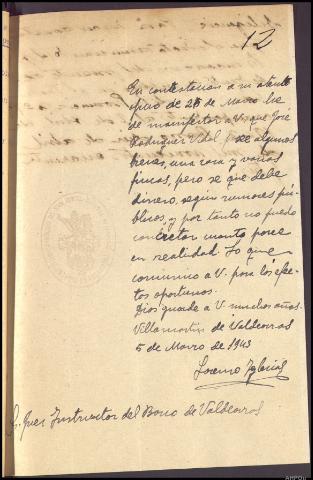 12
En contestacion a su atento
oficio de 26 de Marzo he
de manifestar a V. que José
Rodriguez Vidal de algunos
bienes, una casa y varias
fincas, pero se que debe
dinero, segun rumores pú-
blicos, y por tanto no puedo
concretar cuanto posee
en realidad. Lo que
comunico a V. para los efec-
tos oportunos.
Dios guarde a V. muchos años.
Villamartin de Valdeorras
5 de Marzo de 1943
Lorenzo Iglesias
Sr. Juez Instructor del Barco de Valdeorras